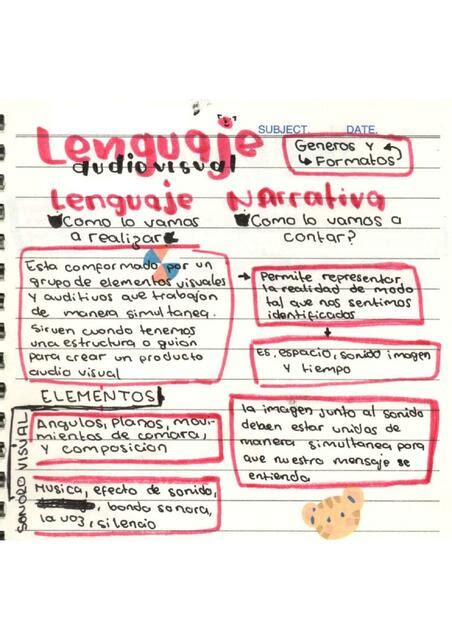 SUBJECT. DATE.
Lenguaje
audiovisual
Generos y
Formatos
Lenguaje
Como lo vamos
a realizar
Esta comformado por un
grupo de elementos visuales
y auditivos que trabajan
de manera simultanea.
Sirven cuando tenemos
una estructura o guión
para crear un producto
audio visual
ELEMENTOS
SONORO VISUAL
Angulos, Planos, movi-
mientos de camara,
y composicion
Musica, efecto de sonido,
banda sonora,
la voz, silencio
Narrativa
Como lo vamos a
contar?
Permite representar
la realidad de modo
tal que nos sentimos
identificados
Es, espacio, sonido imagen
y tiempo
la imagen junto al sonido
deben estar unidos de
manera simultanea para
que nuestro mensaje se
entienda